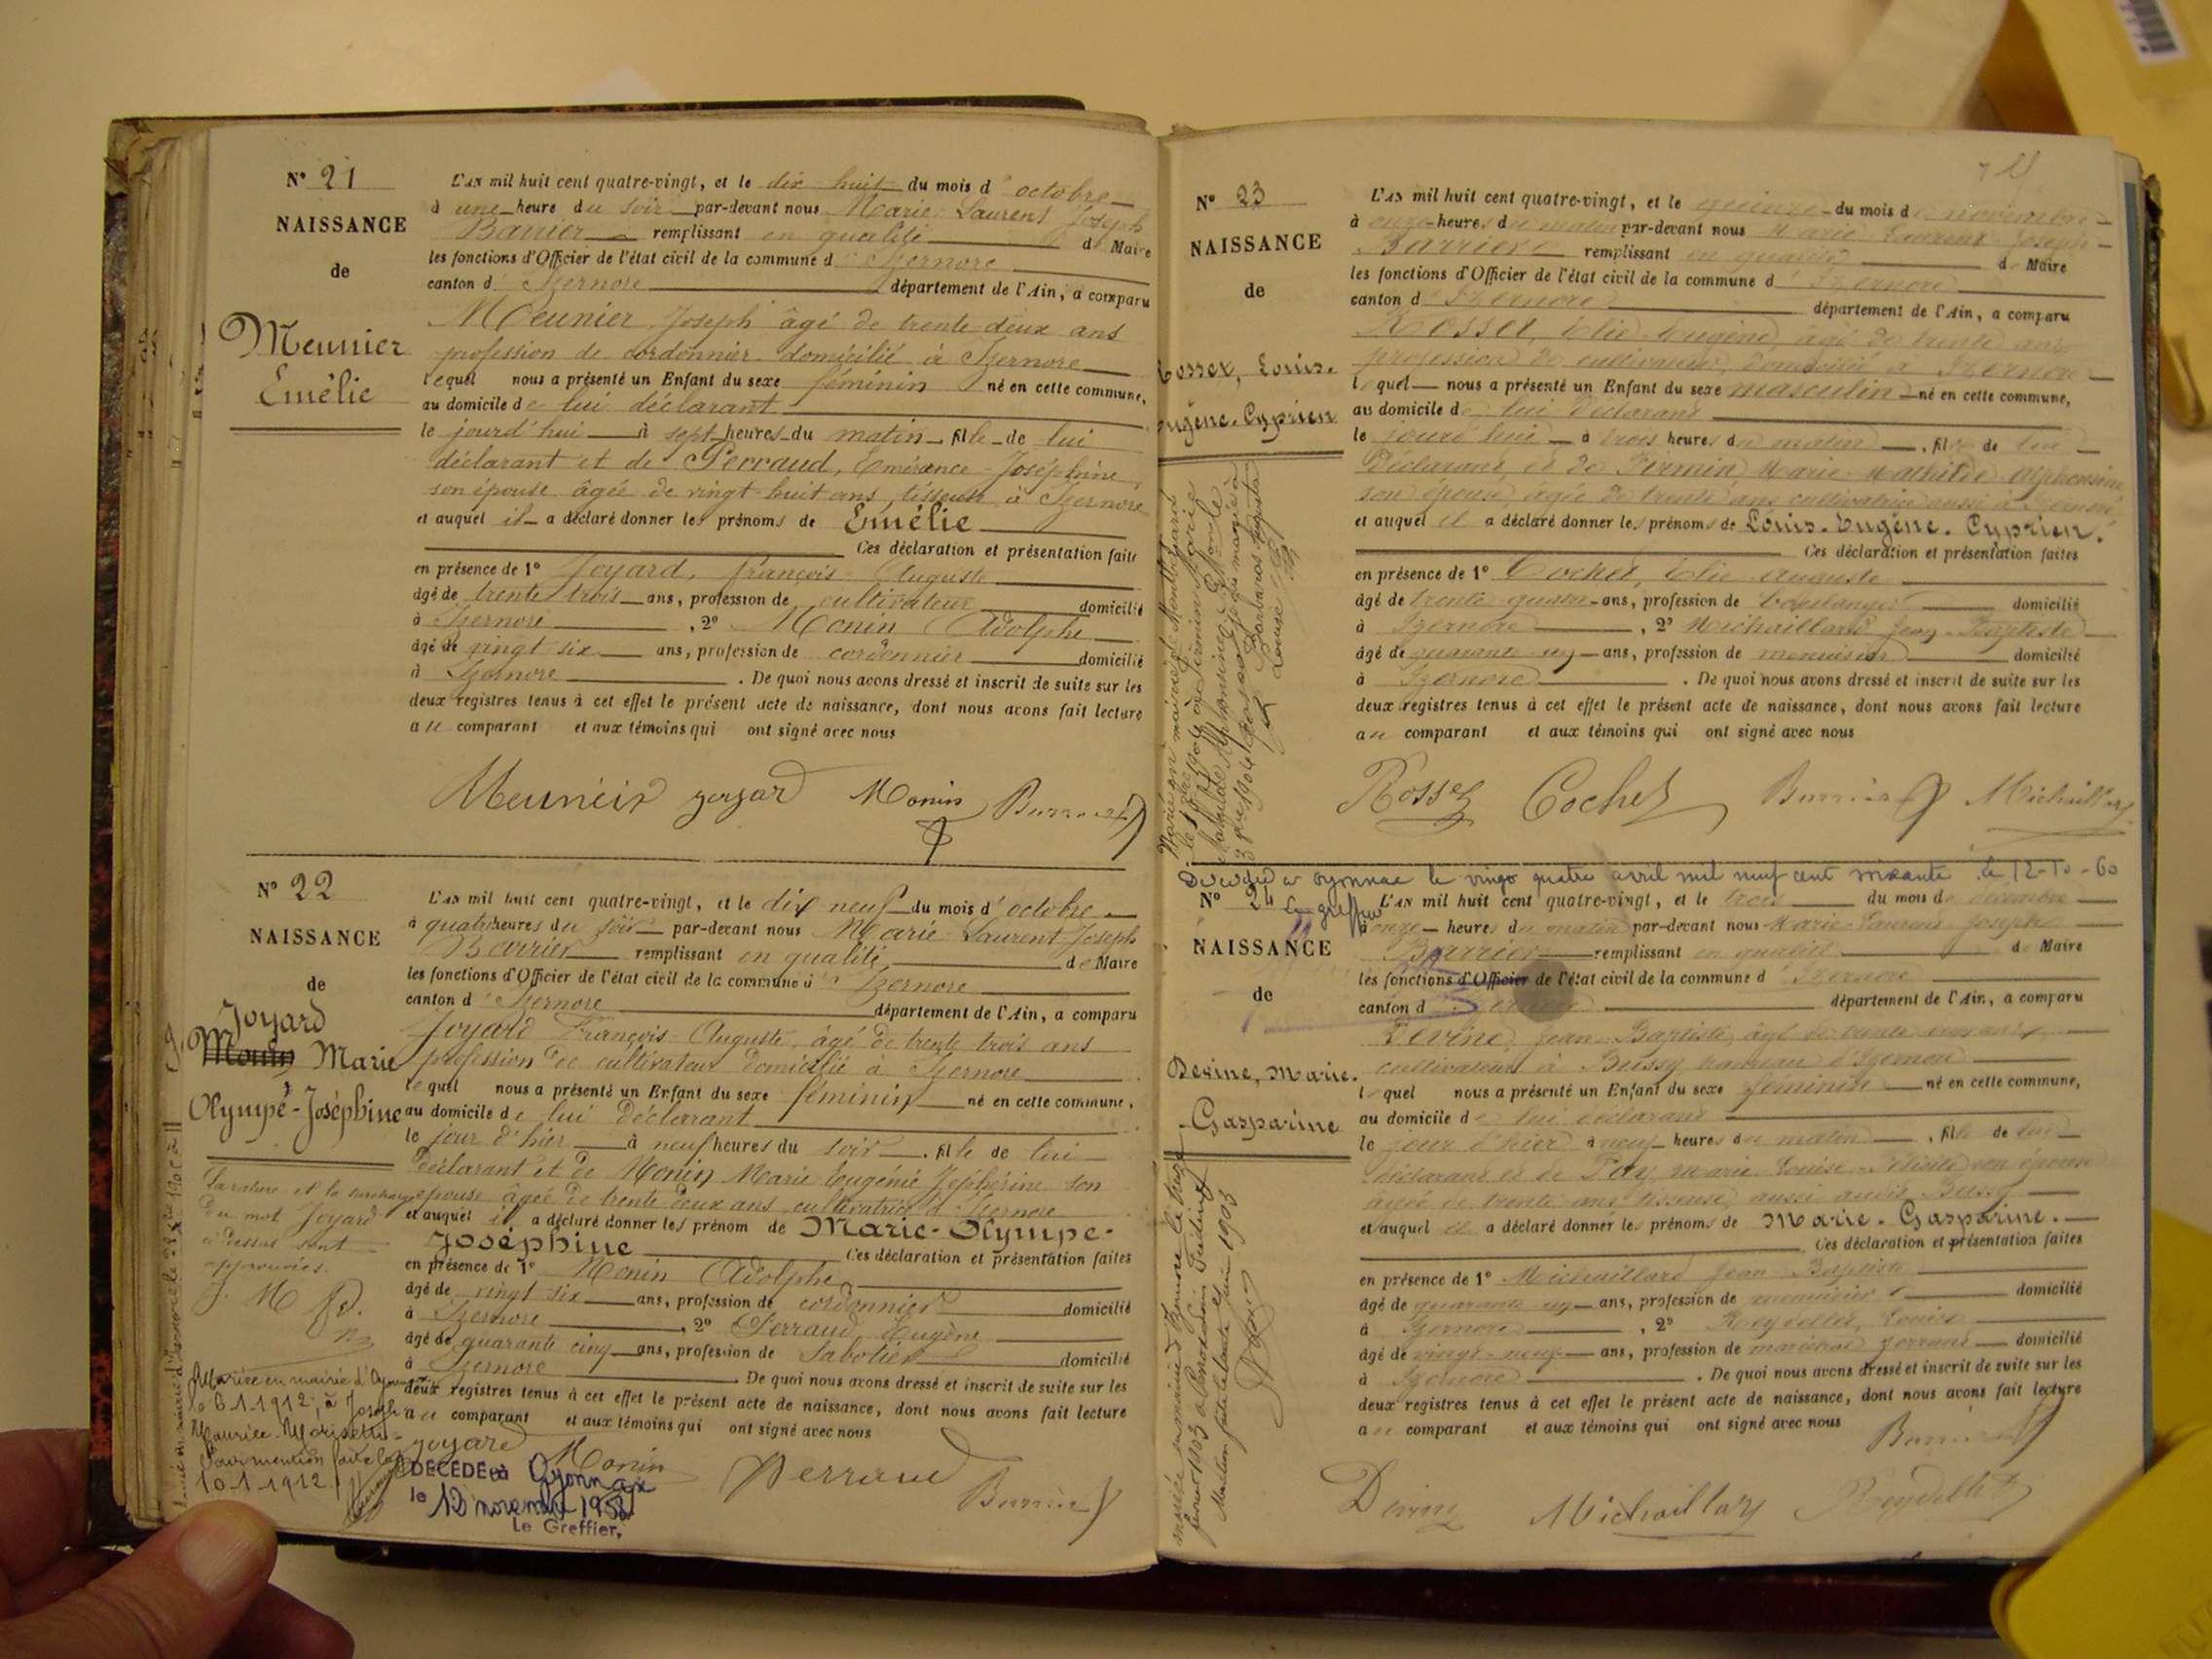 N° 21
NAISSANCE
de
Meunier
Emélie
L'AN mil huit cent quatre-vingt, et le dix huit du mois d'octobre
à une heure du soir par-devant nous Marie Laurent Joseph
remplissant en qualité de Maire
les fonctions d'Officier de l'état civil de la commune d'Izernore
canton d'Izernore département de l'Ain, a comparu
Meunier, Joseph âgé de trente deux ans
profession de cordonnier domicilié à Izernore
lequel nous a présenté un Enfant du sexe féminin né en cette commune,
au domicile de lui déclarant
le jourd'hui à sept heures du matin, fille de lui
déclarant et de Perraud, Emérance Joséphine,
son épouse âgée de vingt-huit ans, tisseuse à Izernore
et auquel il a déclaré donner les prénoms de Emélie
Ces déclaration et présentation faites
en présence de 1° Joyard, François Auguste
âgé de trente trois ans, profession de cultivateur domicilié
à Izernore, 2° Monin Adolphe
âgé de vingt six ans, profession de cordonnier domicilié
à Izernore. De quoi nous avons dressé et inscrit de suite sur les
deux registres tenus à cet effet le présent acte de naissance, dont nous avons fait lecture
au comparant et aux témoins qui ont signé avec nous
Meunier Joyard Monin
N° 22
NAISSANCE
de
Joyard
Monin Marie
Olympe-Joséphine
La rature et la surcharge
du mot Joyard
ci-dessus sont
approuvées.
Mariée en mairie d'Oyonnax
le 6.1.1912, à Joseph
Maurice
Pour mention faite le
10.1.1912
L'AN mil huit cent quatre-vingt, et le dix neuf du mois d'octobre
à quatre heures du soir par-devant nous Marie Laurent Joseph
Barrier remplissant en qualité de Maire
les fonctions d'Officier de l'état civil de la commune d'Izernore
canton d'Izernore département de l'Ain, a comparu
Joyard François Auguste, âgé de trente trois ans
profession de cultivateur domicilié à Izernore
lequel nous a présenté un Enfant du sexe féminin né en cette commune,
au domicile de lui déclarant
le jour d'hier à neuf heures du soir, fille de lui
déclarant et de Monin Marie Eugénie Zéphérine son
épouse âgée de trente deux ans, cultivatrice à Izernore
et auquel il a déclaré donner les prénom de Marie-Olympe-
Joséphine Ces déclaration et présentation faites
en présence de 1° Monin Adolphe
âgé de vingt six ans, profession de cordonnier domicilié
à Izernore, 2° Perraud Eugène
âgé de quarante cinq ans, profession de Sabotier domicilié
à Izernore. De quoi nous avons dressé et inscrit de suite sur les
deux registres tenus à cet effet le présent acte de naissance, dont nous avons fait lecture
au comparant et aux témoins qui ont signé avec nous
Joyard Monin Perraud
DÉCÉDÉ à Oyonnax
le 12 novembre
Le Greffier,
N° 23
NAISSANCE
de
Rosset, Louis-
Eugène-Cyprien
L'AN mil huit cent quatre-vingt, et le quinze du mois de novembre
à onze heures du matin par-devant nous Marie Laurent Joseph
Barrier remplissant en qualité de Maire
les fonctions d'Officier de l'état civil de la commune d'Izernore
canton d'Izernore département de l'Ain, a comparu
Rosset, Elie Eugène, âgé de trente ans
profession de cultivateur, domicilié à Izernore
lequel nous a présenté un Enfant du sexe masculin né en cette commune,
au domicile de lui déclarant
le jourd'hui à trois heures du matin, fils de lui
déclarant et de Firmin, Marie Mathilde Alphonsine
son épouse, âgée de trente ans cultivatrice aussi à Izernore
et auquel il a déclaré donner les prénoms de Louis-Eugène-Cyprien.
Ces déclaration et présentation faites
en présence de 1° Cochet, Elie Auguste
âgé de trente quatre ans, profession de boulanger domicilié
à Izernore, 2° Michaillard Jean-Baptiste
âgé de quarante un ans, profession de menuisier domicilié
à Izernore. De quoi nous avons dressé et inscrit de suite sur les
deux registres tenus à cet effet le présent acte de naissance, dont nous avons fait lecture
au comparant et aux témoins qui ont signé avec nous
Rosset Cochet Michaillard
Décédé à Oyonnax le vingt quatre avril mil neuf cent soixante le 12-10-60
Le greffier
N° 24
NAISSANCE
de
Devine, Marie-
Gasparine
L'AN mil huit cent quatre-vingt, et le trois du mois de décembre
à onze heures du matin par-devant nous Marie-Laurent Joseph
Barrier remplissant en qualité de Maire
les fonctions d'Officier de l'état civil de la commune d'Izernore
canton d'Izernore département de l'Ain, a comparu
Devine, Jean Baptiste, âgé de trente
cultivateur à Bussy hameau d'Izernore
lequel nous a présenté un Enfant du sexe féminin né en cette commune,
au domicile de lui déclarant
le jour d'hier à neuf heures du matin, fille de lui
déclarant et de Marie Louise son épouse
âgée de trente ans tisseuse, aussi audit Bussy
et auquel il a déclaré donner les prénoms de Marie-Gasparine.
Ces déclaration et présentation faites
en présence de 1° Michaillard Jean Baptiste
âgé de quarante un ans, profession de menuisier domicilié
à Izernore, 2° Reydellet, Louis
âgé de vingt-neuf ans, profession de maréchal ferrant domicilié
à Izernore. De quoi nous avons dressé et inscrit de suite sur les
deux registres tenus à cet effet le présent acte de naissance, dont nous avons fait lecture
au comparant et aux témoins qui ont signé avec nous
Michaillard Reydellet